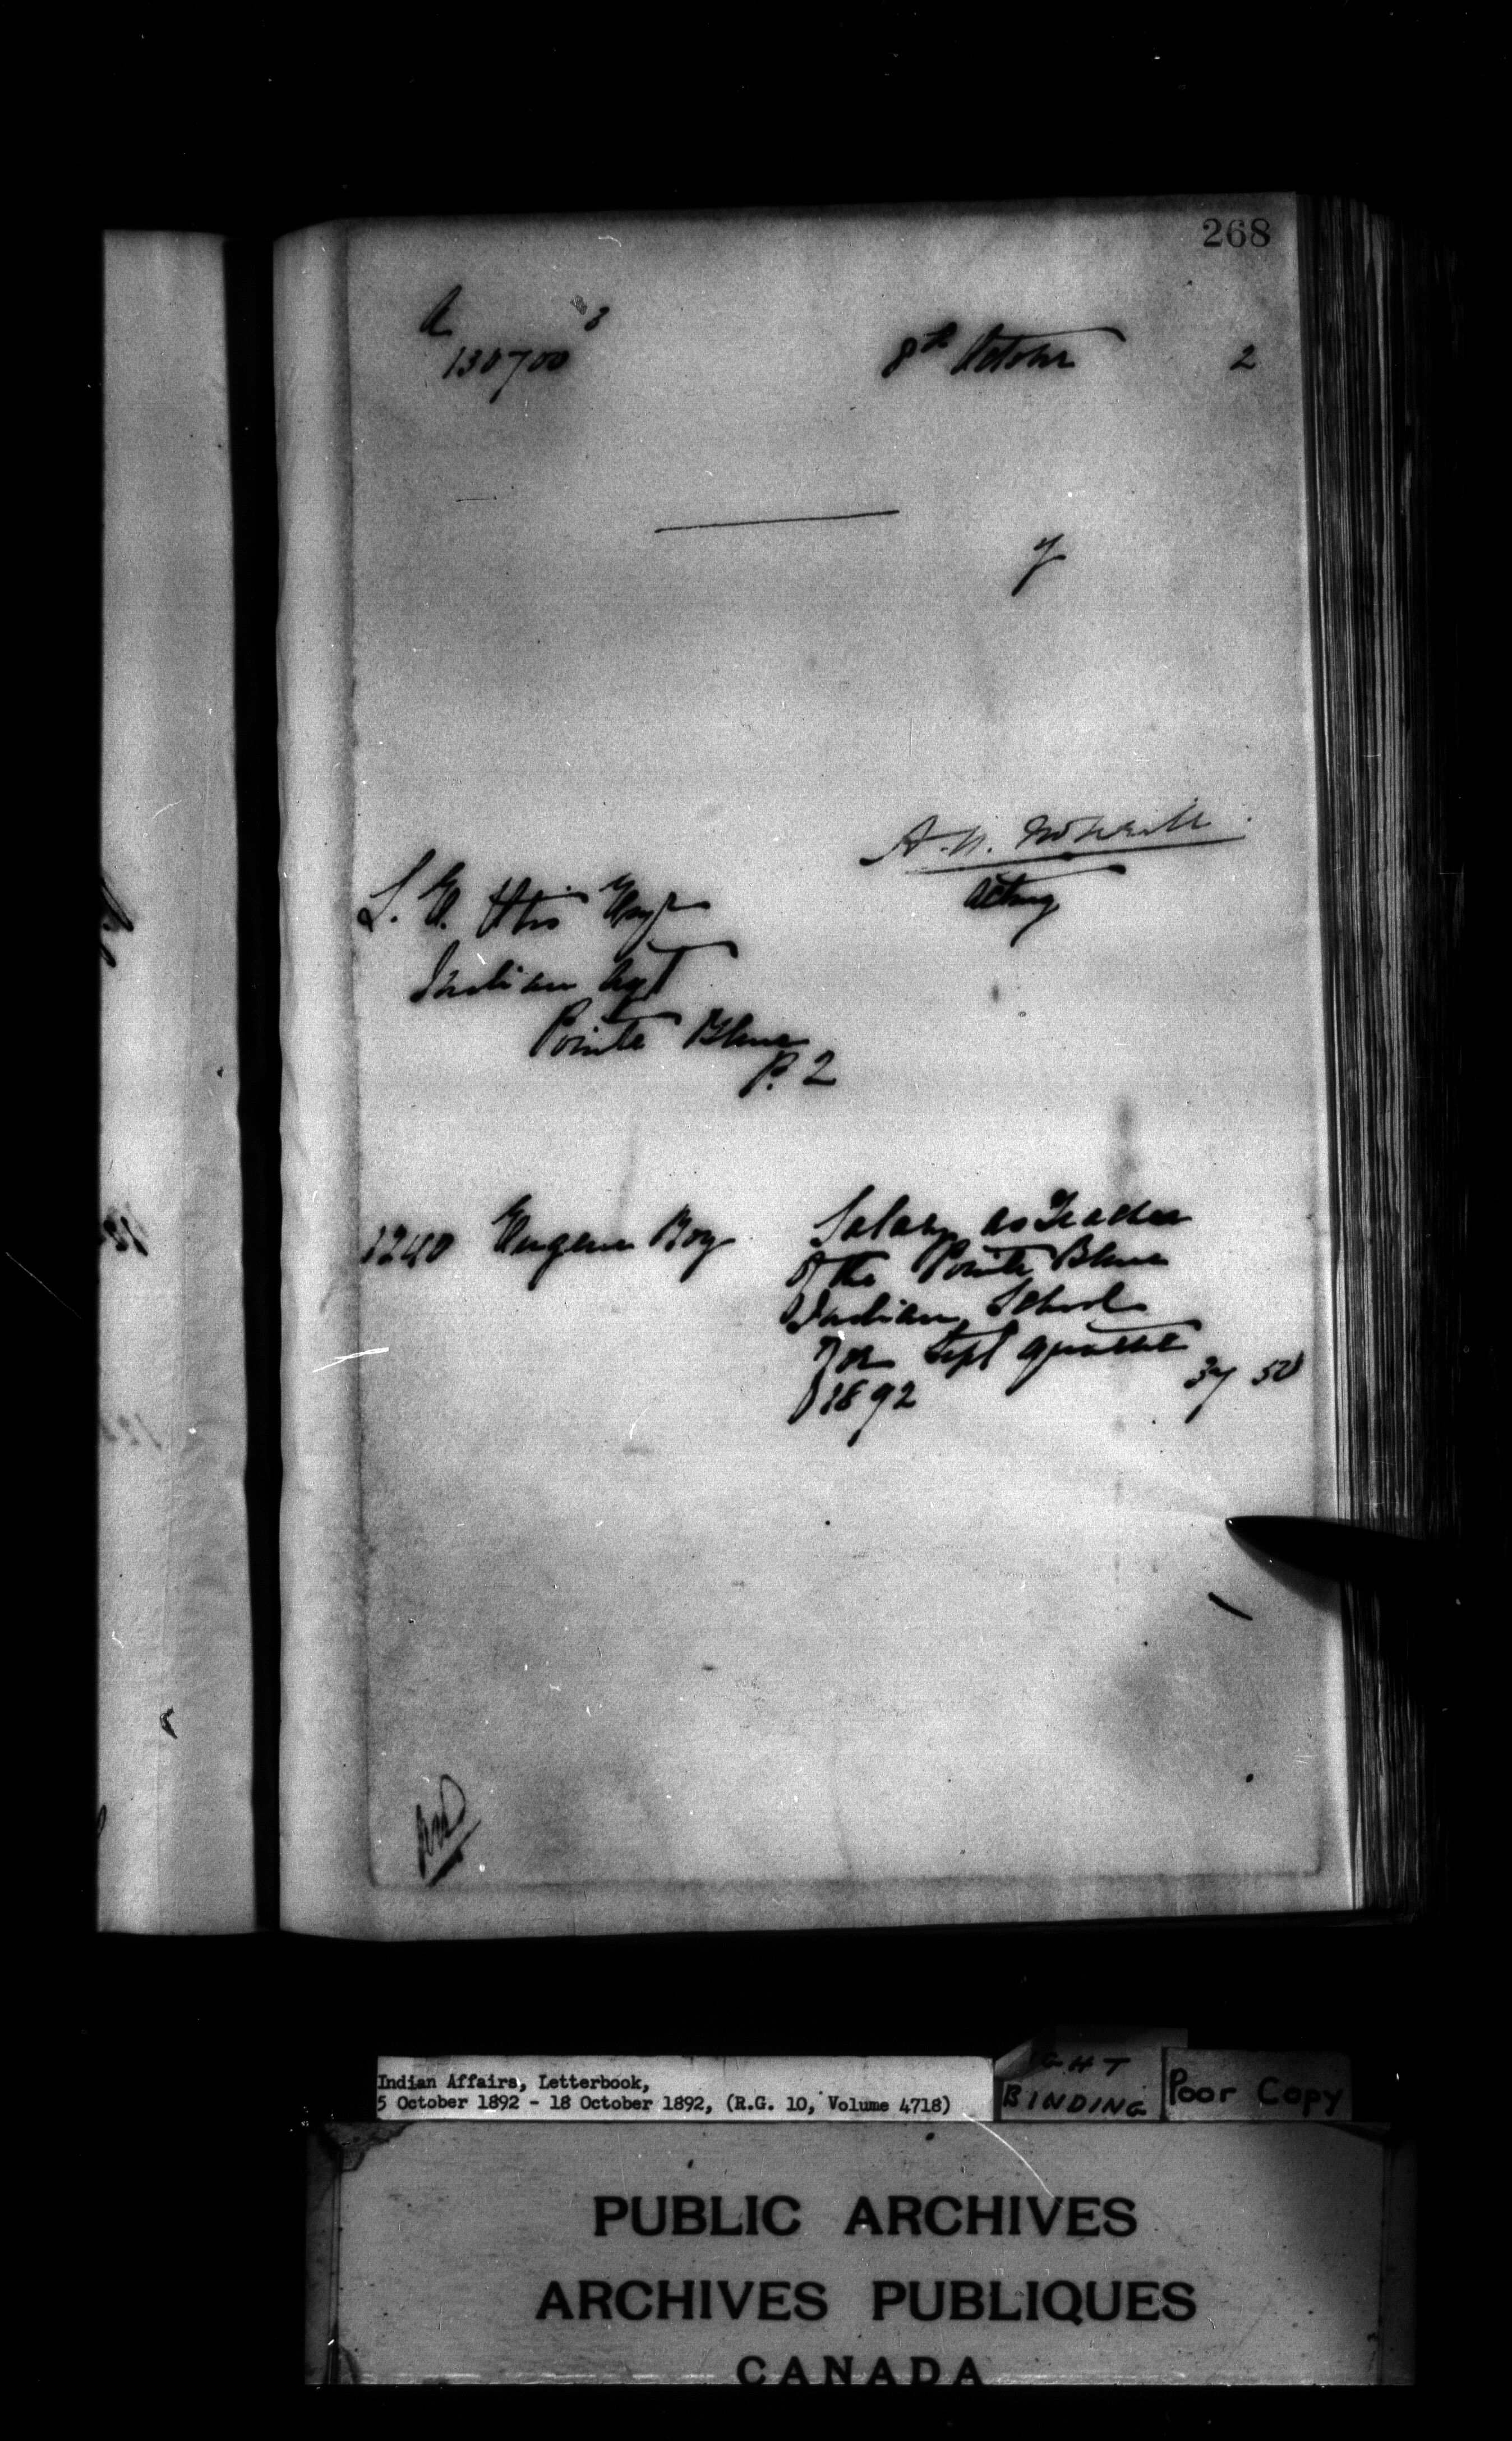 268
A
130700 3
8th October 2
y
A. N. McNeill
Acting
L. E. Otis Esqr
Indian Agt
Pointe Bleue
P. Q
1240 Eugene Roy Salary as Teacher
of the Pointe Bleue
Indian School
for Sept quarter
1892 37 50
Indian Affairs, Letterbook,
5 October 1892 - 18 October 1892, (R.G. 10, Volume 4718)
GHT
BINDING
Poor Copy
PUBLIC ARCHIVES
ARCHIVES PUBLIQUES
CANADA